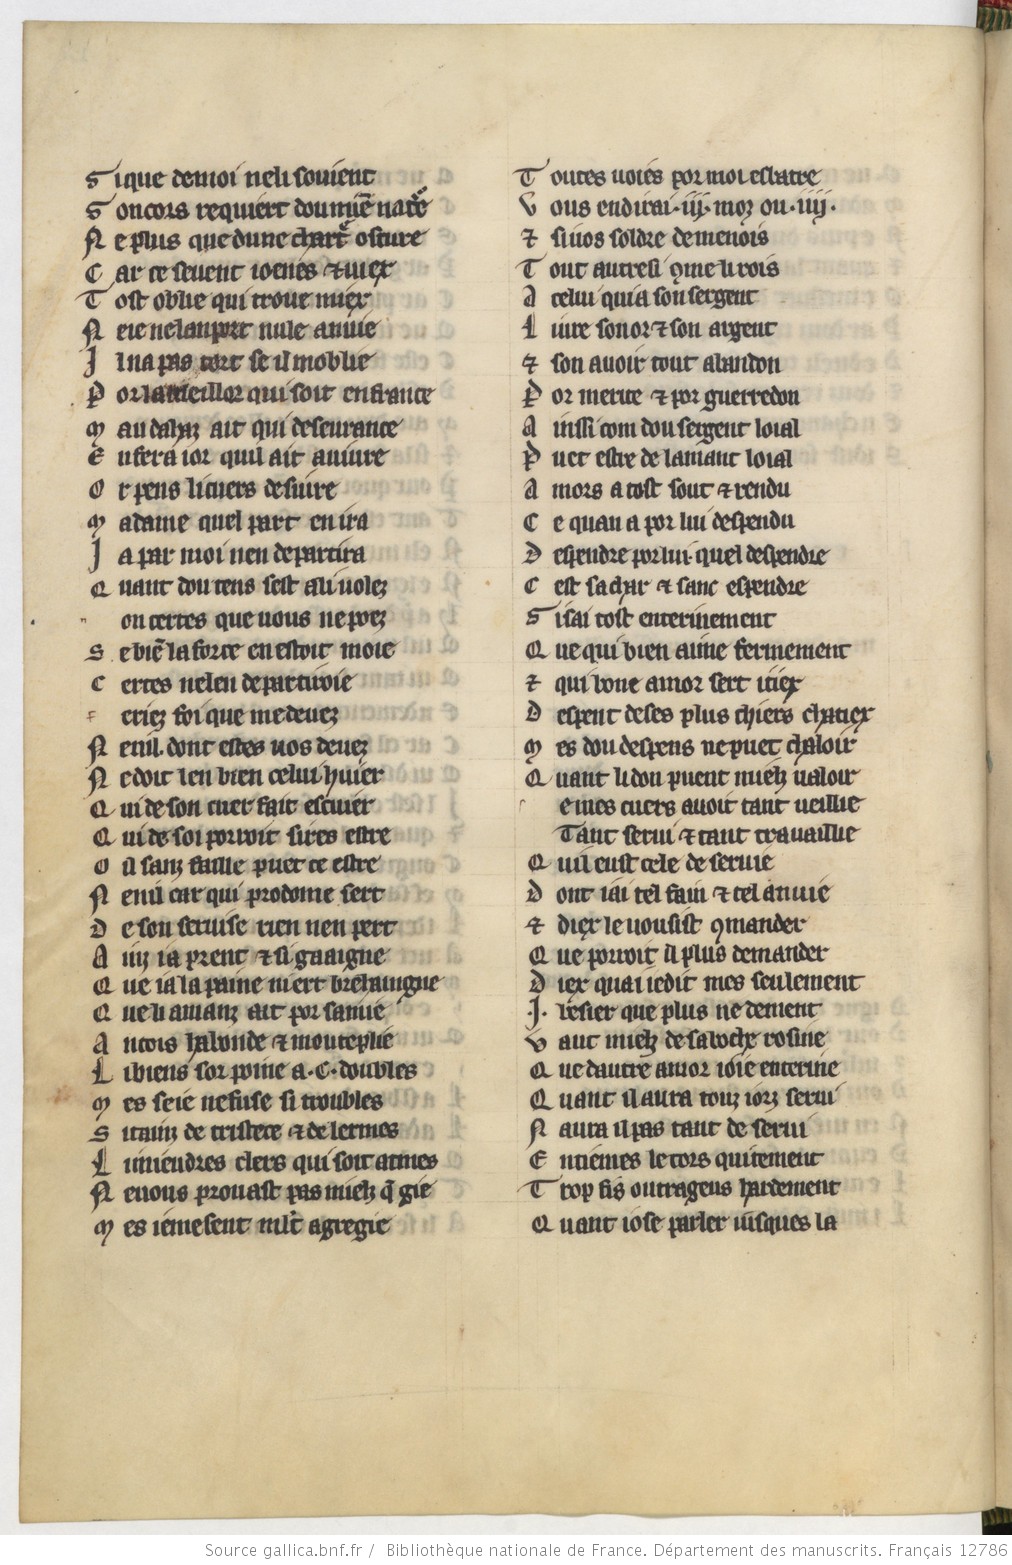 S ique de moi ne li souient
S on cors requiert dou mue᷑ natͬe
N e plus que dune chartͬ oscure
C ar ce seuent ioenes ⁊ uiex
T ost oblie qui troue miex
N e ie ne lan port nule anuie
I l na pas tort se il moblie
P or la meillor qui soit en france
M au dahaz ait qui deseurance
E n fera ior quil ait a uiure
O r pens li cuers de suire
M a dame quel part en ira
J a par moi nen departira
Q uant dou tens sest a li uolez
on certes que uous ne poez
S e bie᷑ la force en estoit moie
C ertes ne len departiroie
eriez foi que me deuez
N enil. dont estes uos deuez
N e doit len bien celui huier
Q ui de son cuer fait escuier
Q ui de soi porroit sires estre
O il sanz faille puet ce estre
N enil car qui prodome sert
D e son seruise rien nen pert
A inz ia prent ⁊ si gaaigne
Q ue ia la paine niert brehaingne
Q ue li amanz ait por samie
A ncois habonde ⁊ mouteplie
L i biens sor poine a .C. doubles
M es se ie ne fuse si troubles
S i tainz de tristece ⁊ de lermes
L i miendres clers qui soit a mes
N e uous prouast pas mielz q̄ gie
M es ie me sent ml̄t agregie
T outes uoies por moi esbatre
V ous en dirai .iij. moz ou .iiij.
⁊ si uos soldre demenois
T out autresi ꝯme li rois
A celui qui a son sergent
L iure son or ⁊ son argent
⁊ son auoir tout a bandon
P or merite ⁊ por guerredon
A inssi com dou sergent loial
P uet estre de lamant loial
A mors a tost sout ⁊ rendu
C e quan a por lui despendu
D espendre por lui. quel despendre
C est sa char ⁊ sanc espendre
S i sai tost enterinement
Q ue qui bien aime fermement
⁊ qui bone amor sert itiex
D espent de ses plus chiers chatiex
M es dou despens ne puet chaloir
Q uant li don pueent mielz ualoir
e mes cuers auoit tant ueillie
Tant serui ⁊ tant trauaillie
Q uil eust cele deseruie
D ont iai tel faui ⁊ tel anuie
⁊ diex le uousist ꝯmander
Q ue porroit il plus demander
D iex quai ie dit mes seulement
.J. besier que plus ne dement
V aut mielz de sa boche rosine
Q ue dautre amor ioie enterine
Q uant il aura touz iorz serui
N aura il pas tant deserui
E ntiemes le cors quitement
T rop fis outrageus hardement
Q uant iose parler iusques la
Source gallica.bnf.fr / Bibliothèque nationale de France. Département des manuscrits. Français 12786